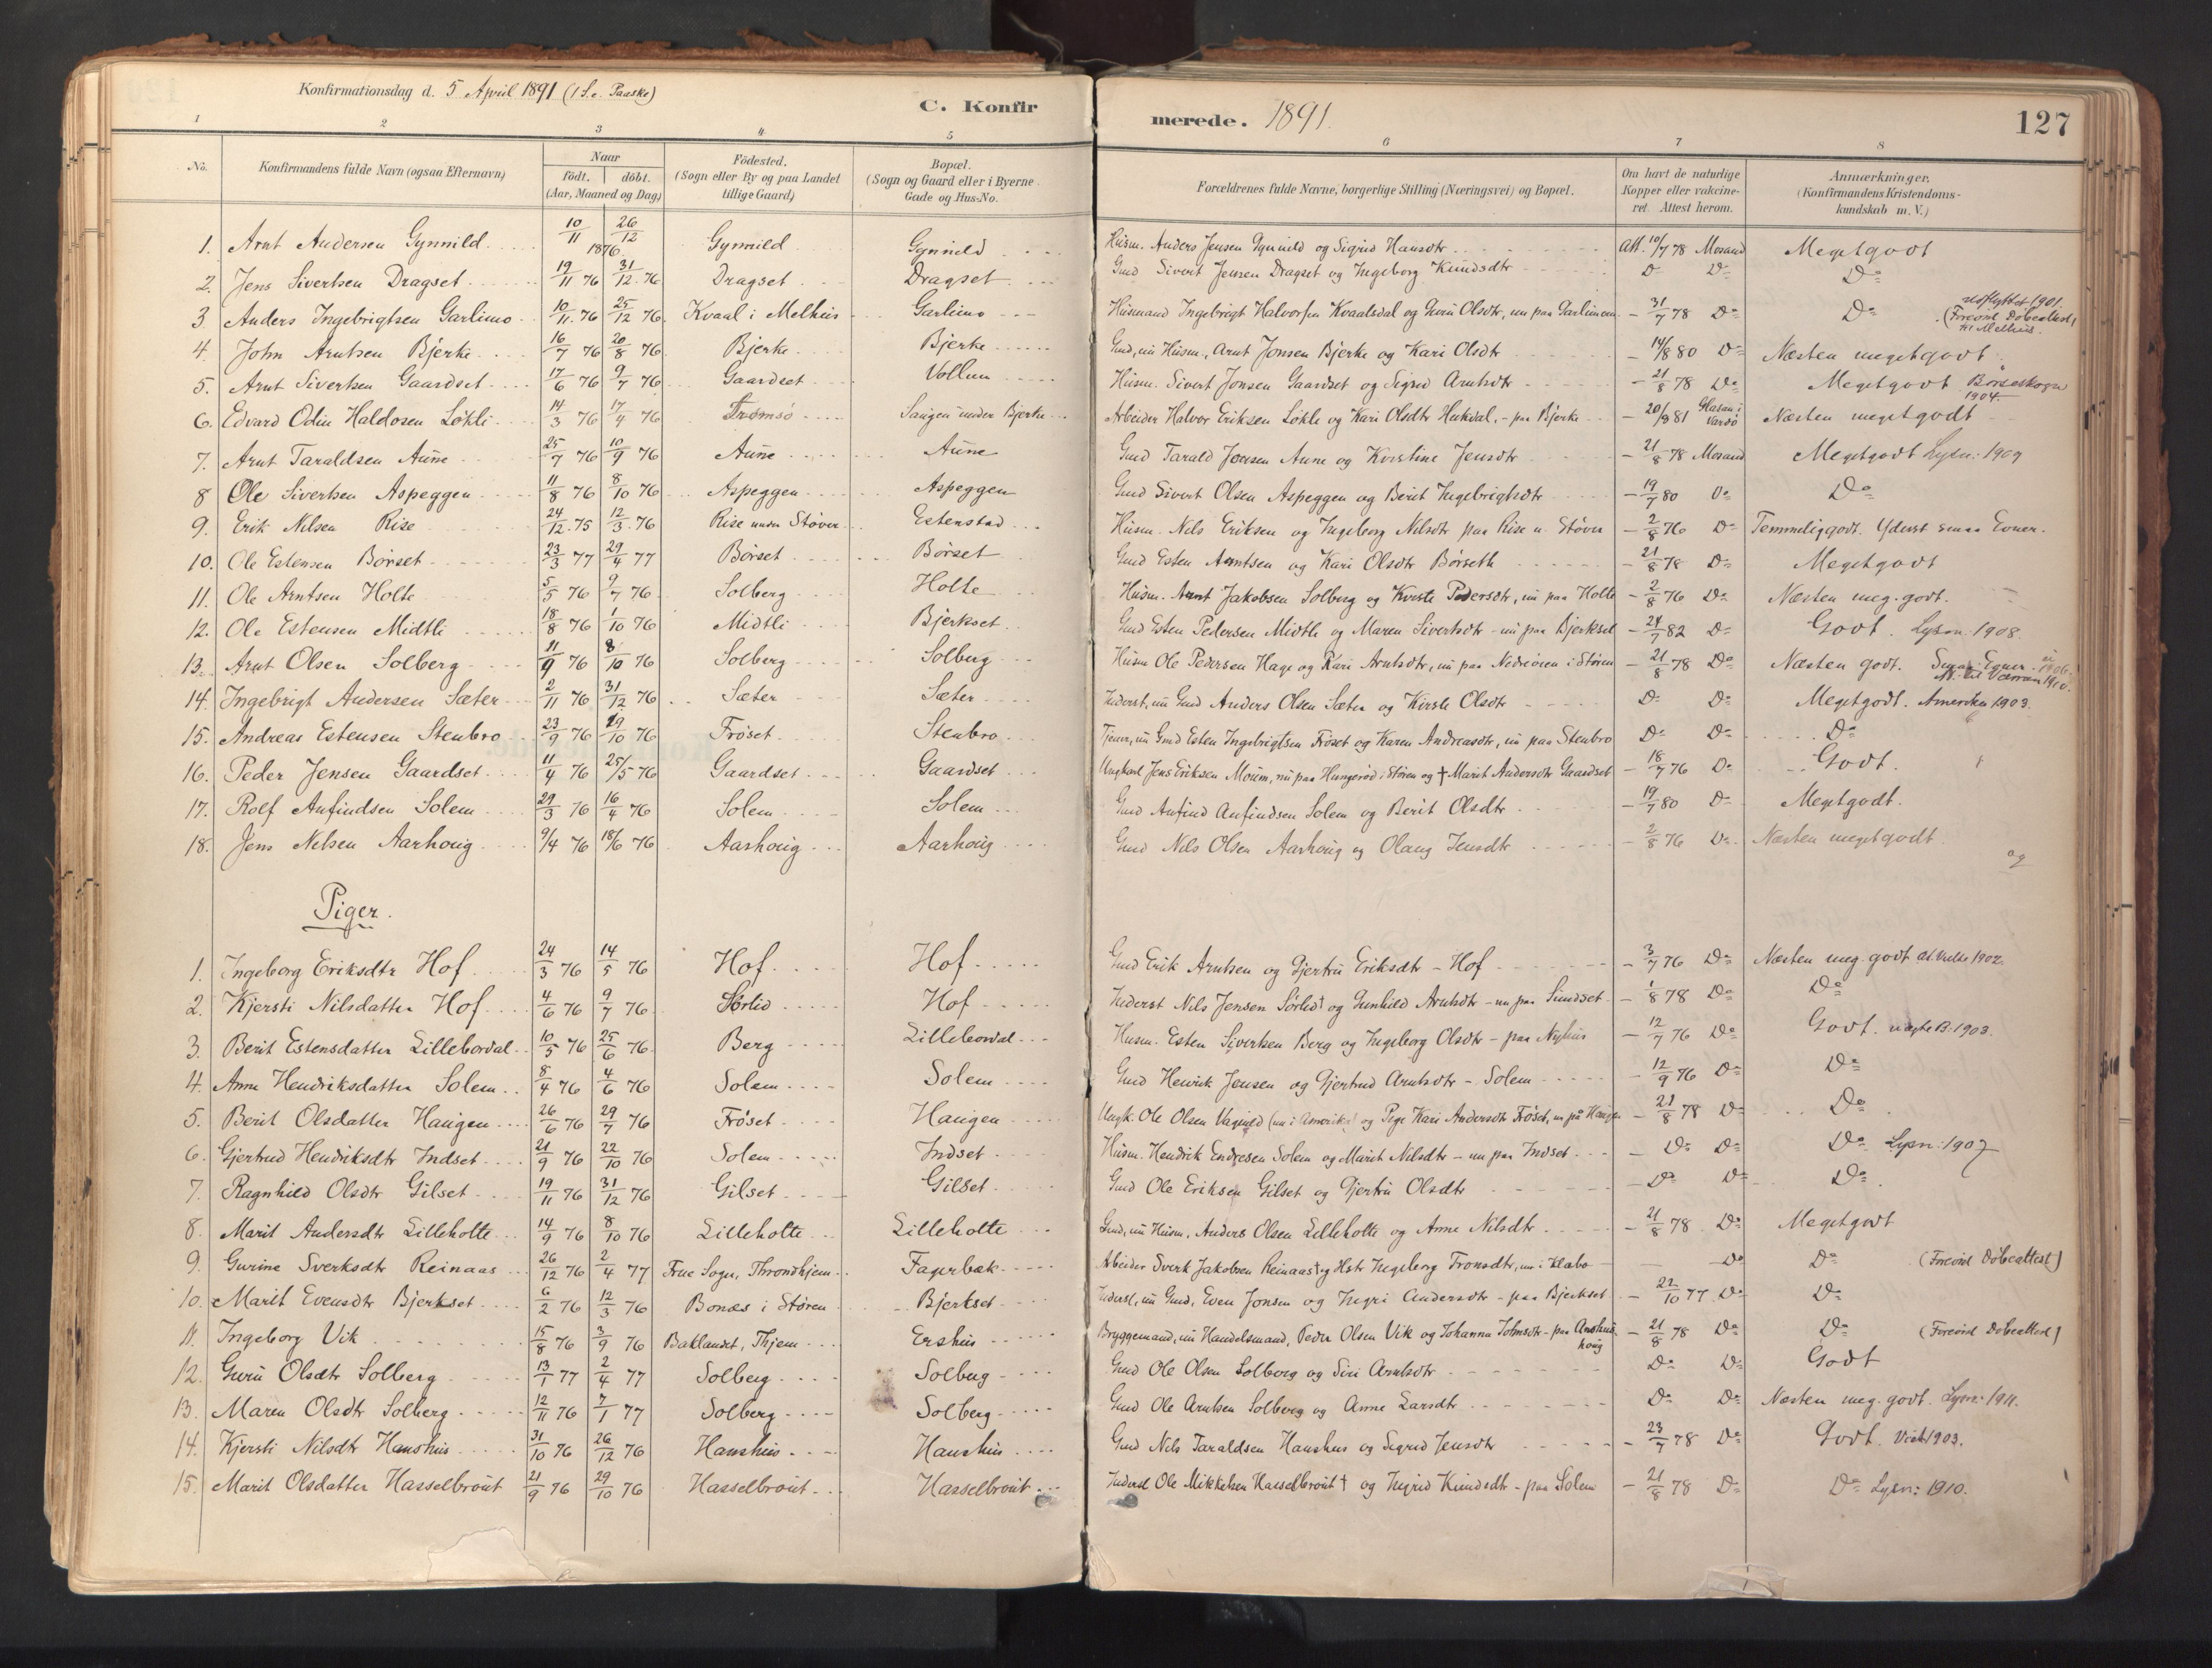 Konfirmationsdag d. 5 April 1891 (1 S. e. Paaske)
C. Konfirmerede. 1891.
127
1 2 3 4 5 6 7 8
No.
Konfirmandens fulde Navn (ogsaa Efternavn)
Naar
födt. döbt.
(Aar, Maaned og Dag)
Födested.
(Sogn eller By og paa Landet
tillige Gaard)
Bopæl.
(Sogn og Gaard eller i Byerne
Gade og Hus-No.
Forældrenes fulde Navne, borgerlige Stilling (Næringsvei) og Bopæl.
Om havt de naturlige
Kopper eller vakcine-
ret. Attest herom.
Anmærkninger.
(Konfirmandens Kristendoms-
kundskab m. V.)
1. Arnt Andersen Gynnild 10/11 26/12 1876 Gynnild Gynnild Husm. Anders Jensen Gynnild og Sigrid Hansdtr Att. 10/7 78 Mosand Megetgodt
2. Jens Sivertsen Dragset 19/11 76 31/12 76 Dragset Dragset Gmd Sivert Jensen Dragset og Ingeborg Knudsdtr Do Do Do
3. Anders Ingebrigtsen Garlimo 10/11 76 25/12 76 Kvaal i Melhus Garlimo Husmand Ingebrigt Halvorsen Kvaalsdal og Guru Olsdtr, nu paa Garlimoen - 31/7 78 Do Do udflyttet 1901. (Forevist Döbeattest) til Melhus.
4. John Arntsen Bjerke 16/7 76 20/8 76 Bjerke Bjerke Gmd, nu Husm., Arnt Jonsen Bjerke og Kari Olsdtr - 14/8 80 Do Næsten megetgodt
5. Arnt Sivertsen Gaardset 17/6 76 9/7 76 Gaardset Vollum Husm. Sivert Jonsen Gaardset og Sigrid Arntsdtr - 21/8 78 Do Megetgodt Börseskogn 1904.
6. Edvard Odin Haldosen Løkli 14/3 76 17/4 76 Tromsö Saugen under Bjerke Arbeider Halvor Eriksen Løkle og Kari Olsdtr Hukdal, - paa Bjerke - 20/8 81 Vardö Næsten megetgodt
7. Arnt Taraldsen Aune 25/7 76 10/9 76 Aune Aune Gmd Tarald Jensen Aune og Kirstine Jensdtr - 21/8 78 Mosand Megetgodt Lysn: 1909
8 Ole Sivertsen Aspeggen 11/8 76 8/10 76 Aspeggen Aspeggen Gmd Sivert Olsen Aspeggen og Berit Ingebrigtsdtr - 19/7 80 Do Do
9. Erik Nilsen Rise 24/12 75 12/3 76 Rise under Støver Estenstad Husm. Nils Eriksen og Ingeborg Nilsdtr paa Rise u. Støver - 2/8 76 Do Temmeliggodt. Yderst smaa Evner.
10. Ole Estensen Børset 23/3 77 29/4 77 Børset Børset Gmd Esten Arntsen og Kari Olsdtr Børseth - 21/8 78 Do Megetgodt
11. Ole Arntsen Holte 5/5 76 9/7 76 Solberg Holte Husm. Arnt Jakobsen Solberg og Kirsti Pedersdtr, nu paa Holte - 2/8 76 Do Næsten meg. godt.
12. Ole Estensen Midtli 18/8 76 1/10 76 Midtli Bjerkset Gmd Esten Pedersen Midtli og Maren Sivertsdtr - nu paa Bjerkset - 24/7 82 Do Godt. Lysn: 1908.
13. Arnt Olsen Solberg 11/9 76 8/10 76 Solberg Solberg Husm Ole Pedersen Hage og Kari Arntsdtr, nu paa Nedreöien i Støren - 21/8 78 Do Næsten godt. Smaa Evner
14. Ingebrigt Andersen Sæter 2/11 76 31/12 76 Sæter Sæter Inderst, nu Gmd Anders Olsen Sæter og Kirsti Olsdtr Do Do Megetgodt. Amerika 1903.
15. Andreas Estensen Stenbro 23/9 76 29/10 76 Frøset Stenbro Tjener, nu Gmd Esten Ingebrigtsen Frøset og Karen Andreasdtr, nu paa Stenbro Do Do Do
16. Peder Jensen Gaardset 11/4 76 25/5 76 Gaardset Gaardset Ungkarl Jens Eriksen Moum, nu paa Hungerød i Støren og † Marit Andersdtr Gaardset - 18/7 76 Do Godt.
17. Rolf Anfindsen Solem 29/3 76 16/4 76 Solem Solem Gmd Anfind Anfindsen Solem og Berit Olsdtr - 19/7 80 Do Megetgodt.
18. Jens Nilsen Aarhoug 9/4 76 18/6 76 Aarhoug Aarhoug Gmd Nils Olsen Aarhoug og Olaug Jensdtr - 2/8 76 Do Næsten megetgodt.
og
Piger.
1. Ingeborg Eriksdtr Hof 24/3 76 14/5 76 Hof Hof Gmd Erik Arntsen og Gjertru Eriksdtr - Hof - 3/7 76 Do Næsten meg. godt 1902.
2. Kjersti Nilsdatter Hof 4/6 76 9/7 76 Sörlid Hof Inderst Nils Jensen Sörlid † og Gunhild Arntsdtr - nu paa Sundset - 1/8 78 Do Do
3. Berit Estensdatter Lillebordal 10/5 76 25/6 76 Berg Lillebordal Husm. Esten Sivertsen Berg og Ingeborg Olsdtr - paa Nyhus - 12/7 76 Do Godt. B. 1903.
4. Anne Hendriksdatter Solem 8/4 76 4/6 76 Solem Solem Gmd Henrik Jensen og Gjertrud Arntsdtr - Solem - 12/9 76 Do Do
5. Berit Olsdatter Haugen 26/6 76 29/7 76 Frøset Haugen Ungk. Ole Olsen Vagnild (nu i Amerika) og Pige Kari Andersdtr Frøset, nu på Haugen - 21/8 78 Do Do
6. Gjertrud Hendriksdtr Indset 21/9 76 22/10 76 Solem Indset Husm. Hendrik Endresen Solem og Marit Nilsdtr - nu paa Indset - Do Do Do Lysn: 1907
7. Ragnhild Olsdtr Gilset 19/11 76 31/12 76 Gilset Gilset Gmd Ole Eriksen Gilset og Gjertru Olsdtr - Do Do Do
8. Marit Andersdtr Lilleholte 14/9 76 8/10 76 Lilleholte Lilleholte Gmd, nu Husm, Anders Olsen Lilleholte og Anne Nilsdtr - 21/8 78 Do Megetgodt
9. Gurine Sverksdtr Reinaas 26/12 76 2/4 77 Frue Sogn, Throndhjem Fagerbæk Arbeider Sverk Jakobsen Reinaas † og Hstr Ingeborg Tronsdtr, nu i Klæbo - Do Do (Forevist Döbeattest)
10. Marit Evensdtr Bjerkset 6/2 76 12/3 76 Bonæs i Støren Bjerkset Inderst, nu Gmd, Even Jonsen og Ingri Andersdtr - paa Bjerkset - 22/10 77 Do Do
11. Ingeborg Vik 15/8 76 3/9 76 Baklandet, Thjem Ershus Bryggemand, nu Handelsmand, Peder Olsen Vik og Johanna Johnsdtr - paa Anshus houg - 21/8 78 Do Do (Forevist Döbeattest)
12. Guru Olsdtr Solberg 13/1 77 2/4 77 Solberg Solberg Gmd Ole Olsen Solberg og Siri Arntsdtr Do Do Godt
13. Maren Olsdtr Solberg 12/11 76 7/1 77 Solberg Solberg Gmd Ole Arntsen Solberg og Anne Larsdtr Do Do Næsten meg. godt. Lysn: 1911.
14. Kjersti Nilsdtr Hanshus 31/10 76 26/12 76 Hanshus Hanshus Gmd Nils Taraldsen Hanshus og Sigrid Jensdtr - 23/7 78 Do Godt. Viet 1903.
15. Marit Olsdatter Hasselbrout 21/9 76 29/10 76 Hasselbrout Hasselbrout Inderst Ole Mikkelsen Hasselbrout † og Ingrid Knudsdtr - paa Solem - 21/8 78 Do Do Lysn: 1910.